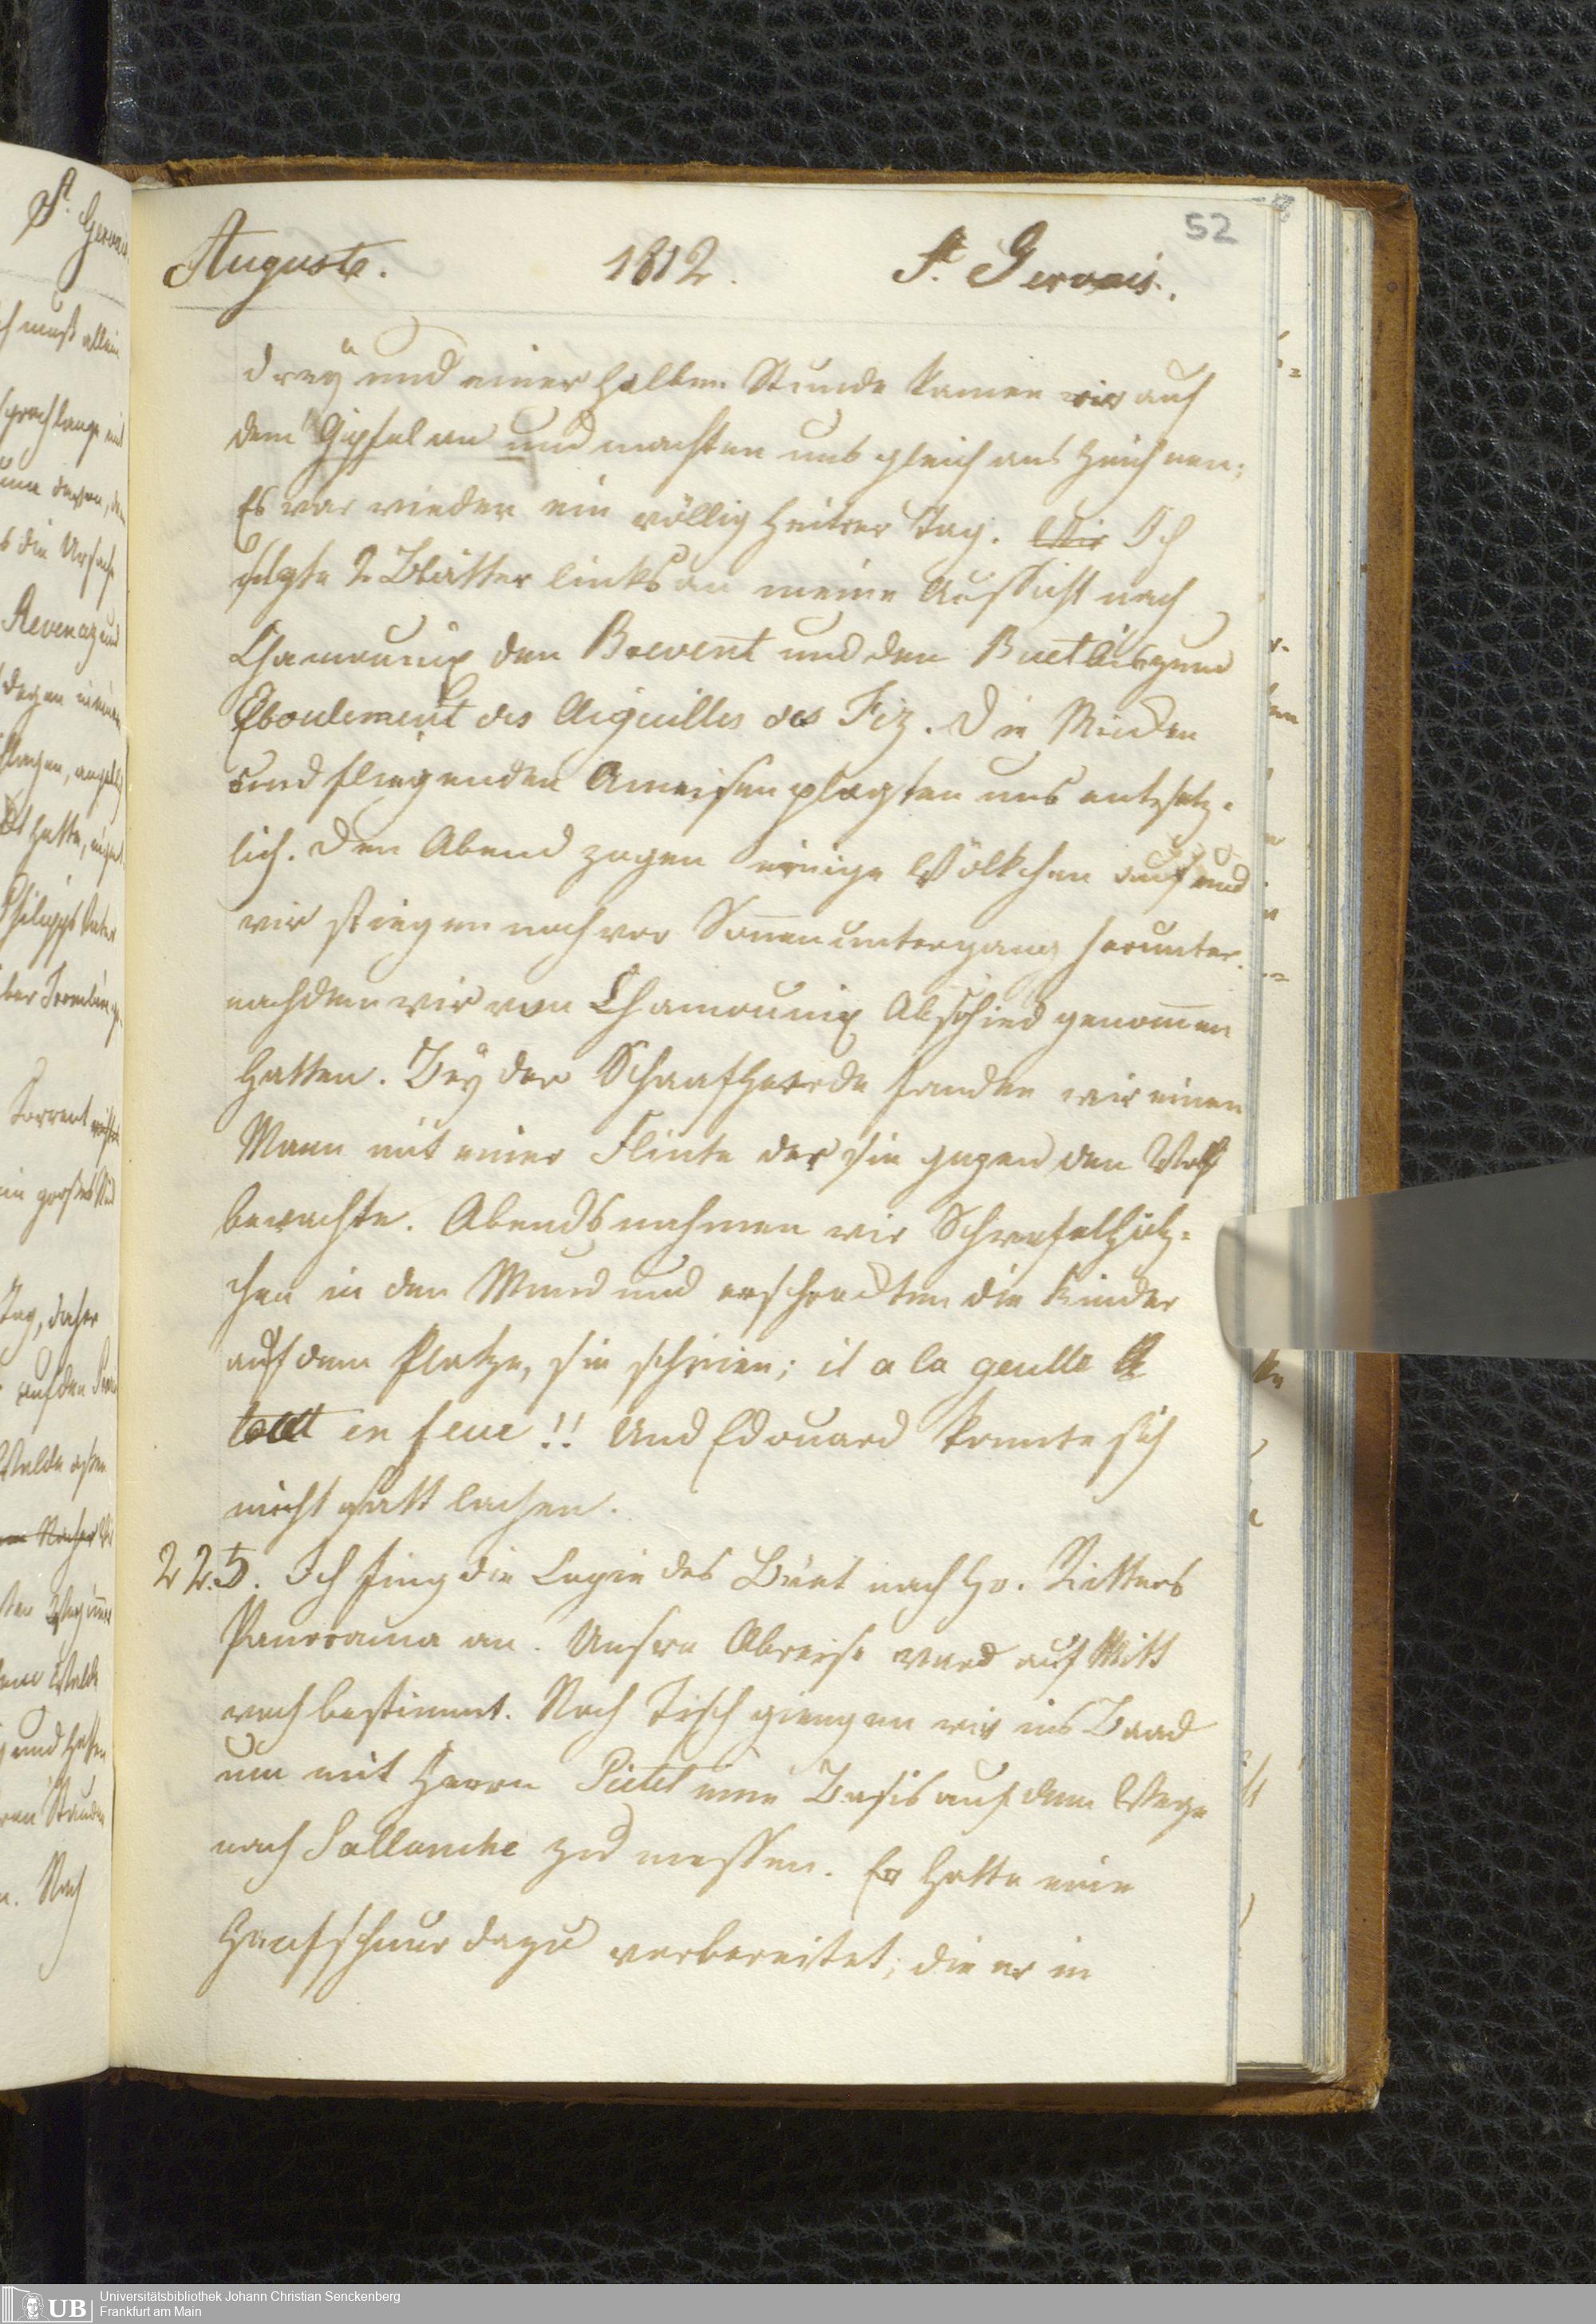 52
Auguste. 1812. St. Gervais.
dreÿ und einer halben Stunde kamen wir auf
dem Gipfel an und machten uns gleich ans Zeichnen;
Es war wieder ein völlig heitrer Tag. Wir Ich
fügte 2 Blätter links an meine Aussicht nach
Chamounix den Brevent und den Buet bis zum
Eboulement des Aiguilles des Fiz. Die Mücken
und fliegenden Ameisen plagten uns entsetz-
lich. Den Abend zogen einige Wölkchen auf und
wir stiegen noch vor Sonnenuntergang herunter.
nachdem wir von Chamounix Abschied genommen
hatten. Beÿ der Schaafheerde fanden wir einen
Mann mit einer Flinte der sie gegen den Wolf
bewachte. Abends nahmen wir Schwefelhölz-
chen in den Mund und erschreckten die Kinder
auf dem Platze, sie schrieen; il a la geulle
tout en feue!! Und Edouard konnte sich
nicht satt lachen.
22. Ich fing die Copie des Büet nach Hr. Ritters
Panorama an. Unsre Abreise ward auf Mitt
woch bestimmt. Nach Tisch giengen wir ins Baad
um mit Herrn Pictet eine Basis auf dem Wege
nach Sallanche zu messen. Er hatte eine
Hanfschnur dazu vorbereitet, die er in
St. Gervais
muß allein
sprach lange mit
die Ursache
Revenaz und
Torrent
Tag, daher
auf den
Walde
und
Nach
Universitätsbibliothek Johann Christian Senckenberg
Frankfurt am Main
UB